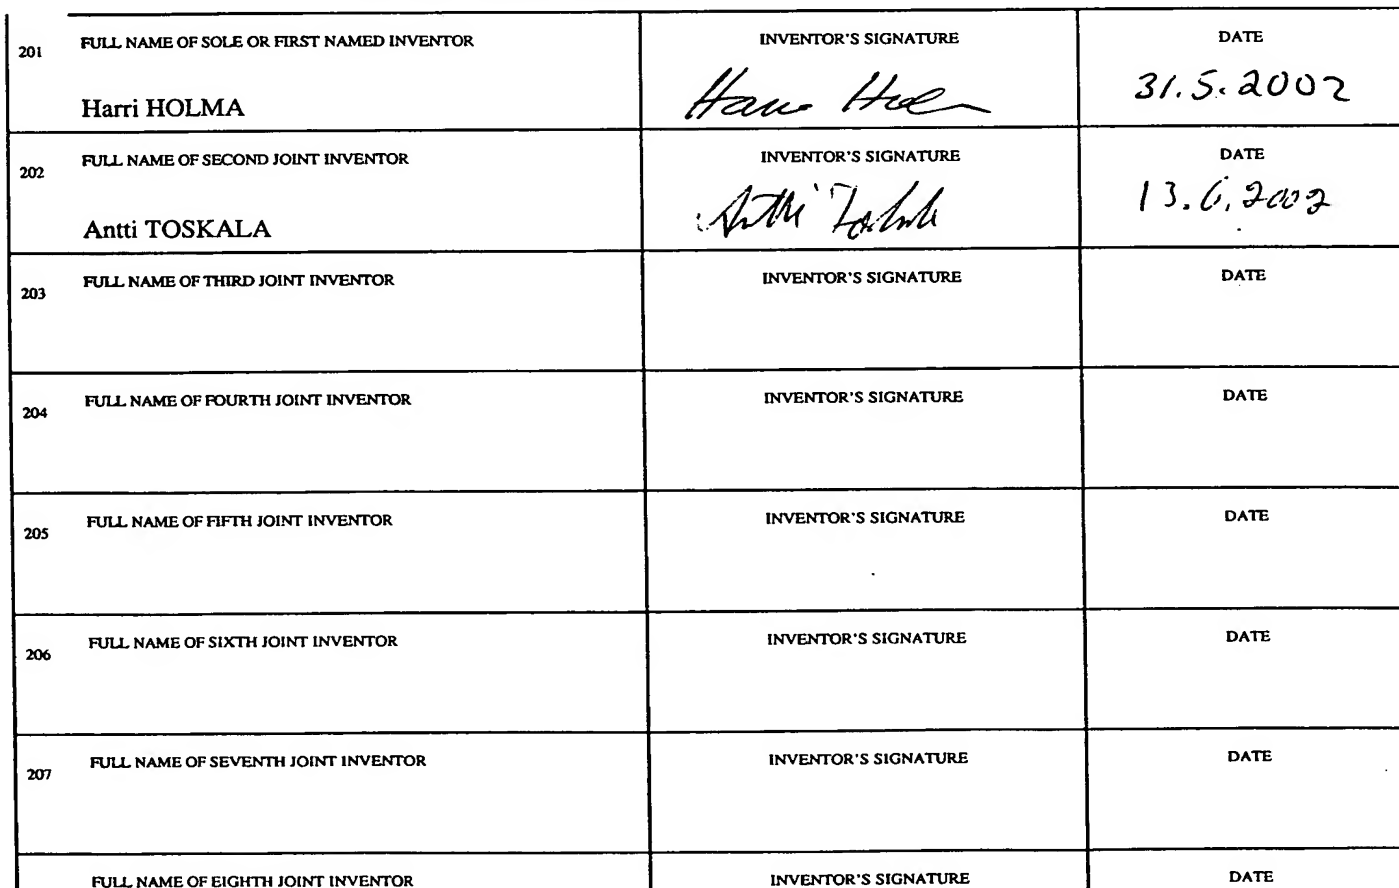 201 FULL NAME OF SOLE OR FIRST NAMED INVENTOR INVENTOR'S SIGNATURE DATE
Harri HOLMA 31.5.2002
202 FULL NAME OF SECOND JOINT INVENTOR INVENTOR'S SIGNATURE DATE
Antti TOSKALA Antti 13.6.2002
203 FULL NAME OF THIRD JOINT INVENTOR INVENTOR'S SIGNATURE DATE
204 FULL NAME OF FOURTH JOINT INVENTOR INVENTOR'S SIGNATURE DATE
205 FULL NAME OF FIFTH JOINT INVENTOR INVENTOR'S SIGNATURE DATE
206 FULL NAME OF SIXTH JOINT INVENTOR INVENTOR'S SIGNATURE DATE
207 FULL NAME OF SEVENTH JOINT INVENTOR INVENTOR'S SIGNATURE DATE
FULL NAME OF EIGHTH JOINT INVENTOR INVENTOR'S SIGNATURE DATE